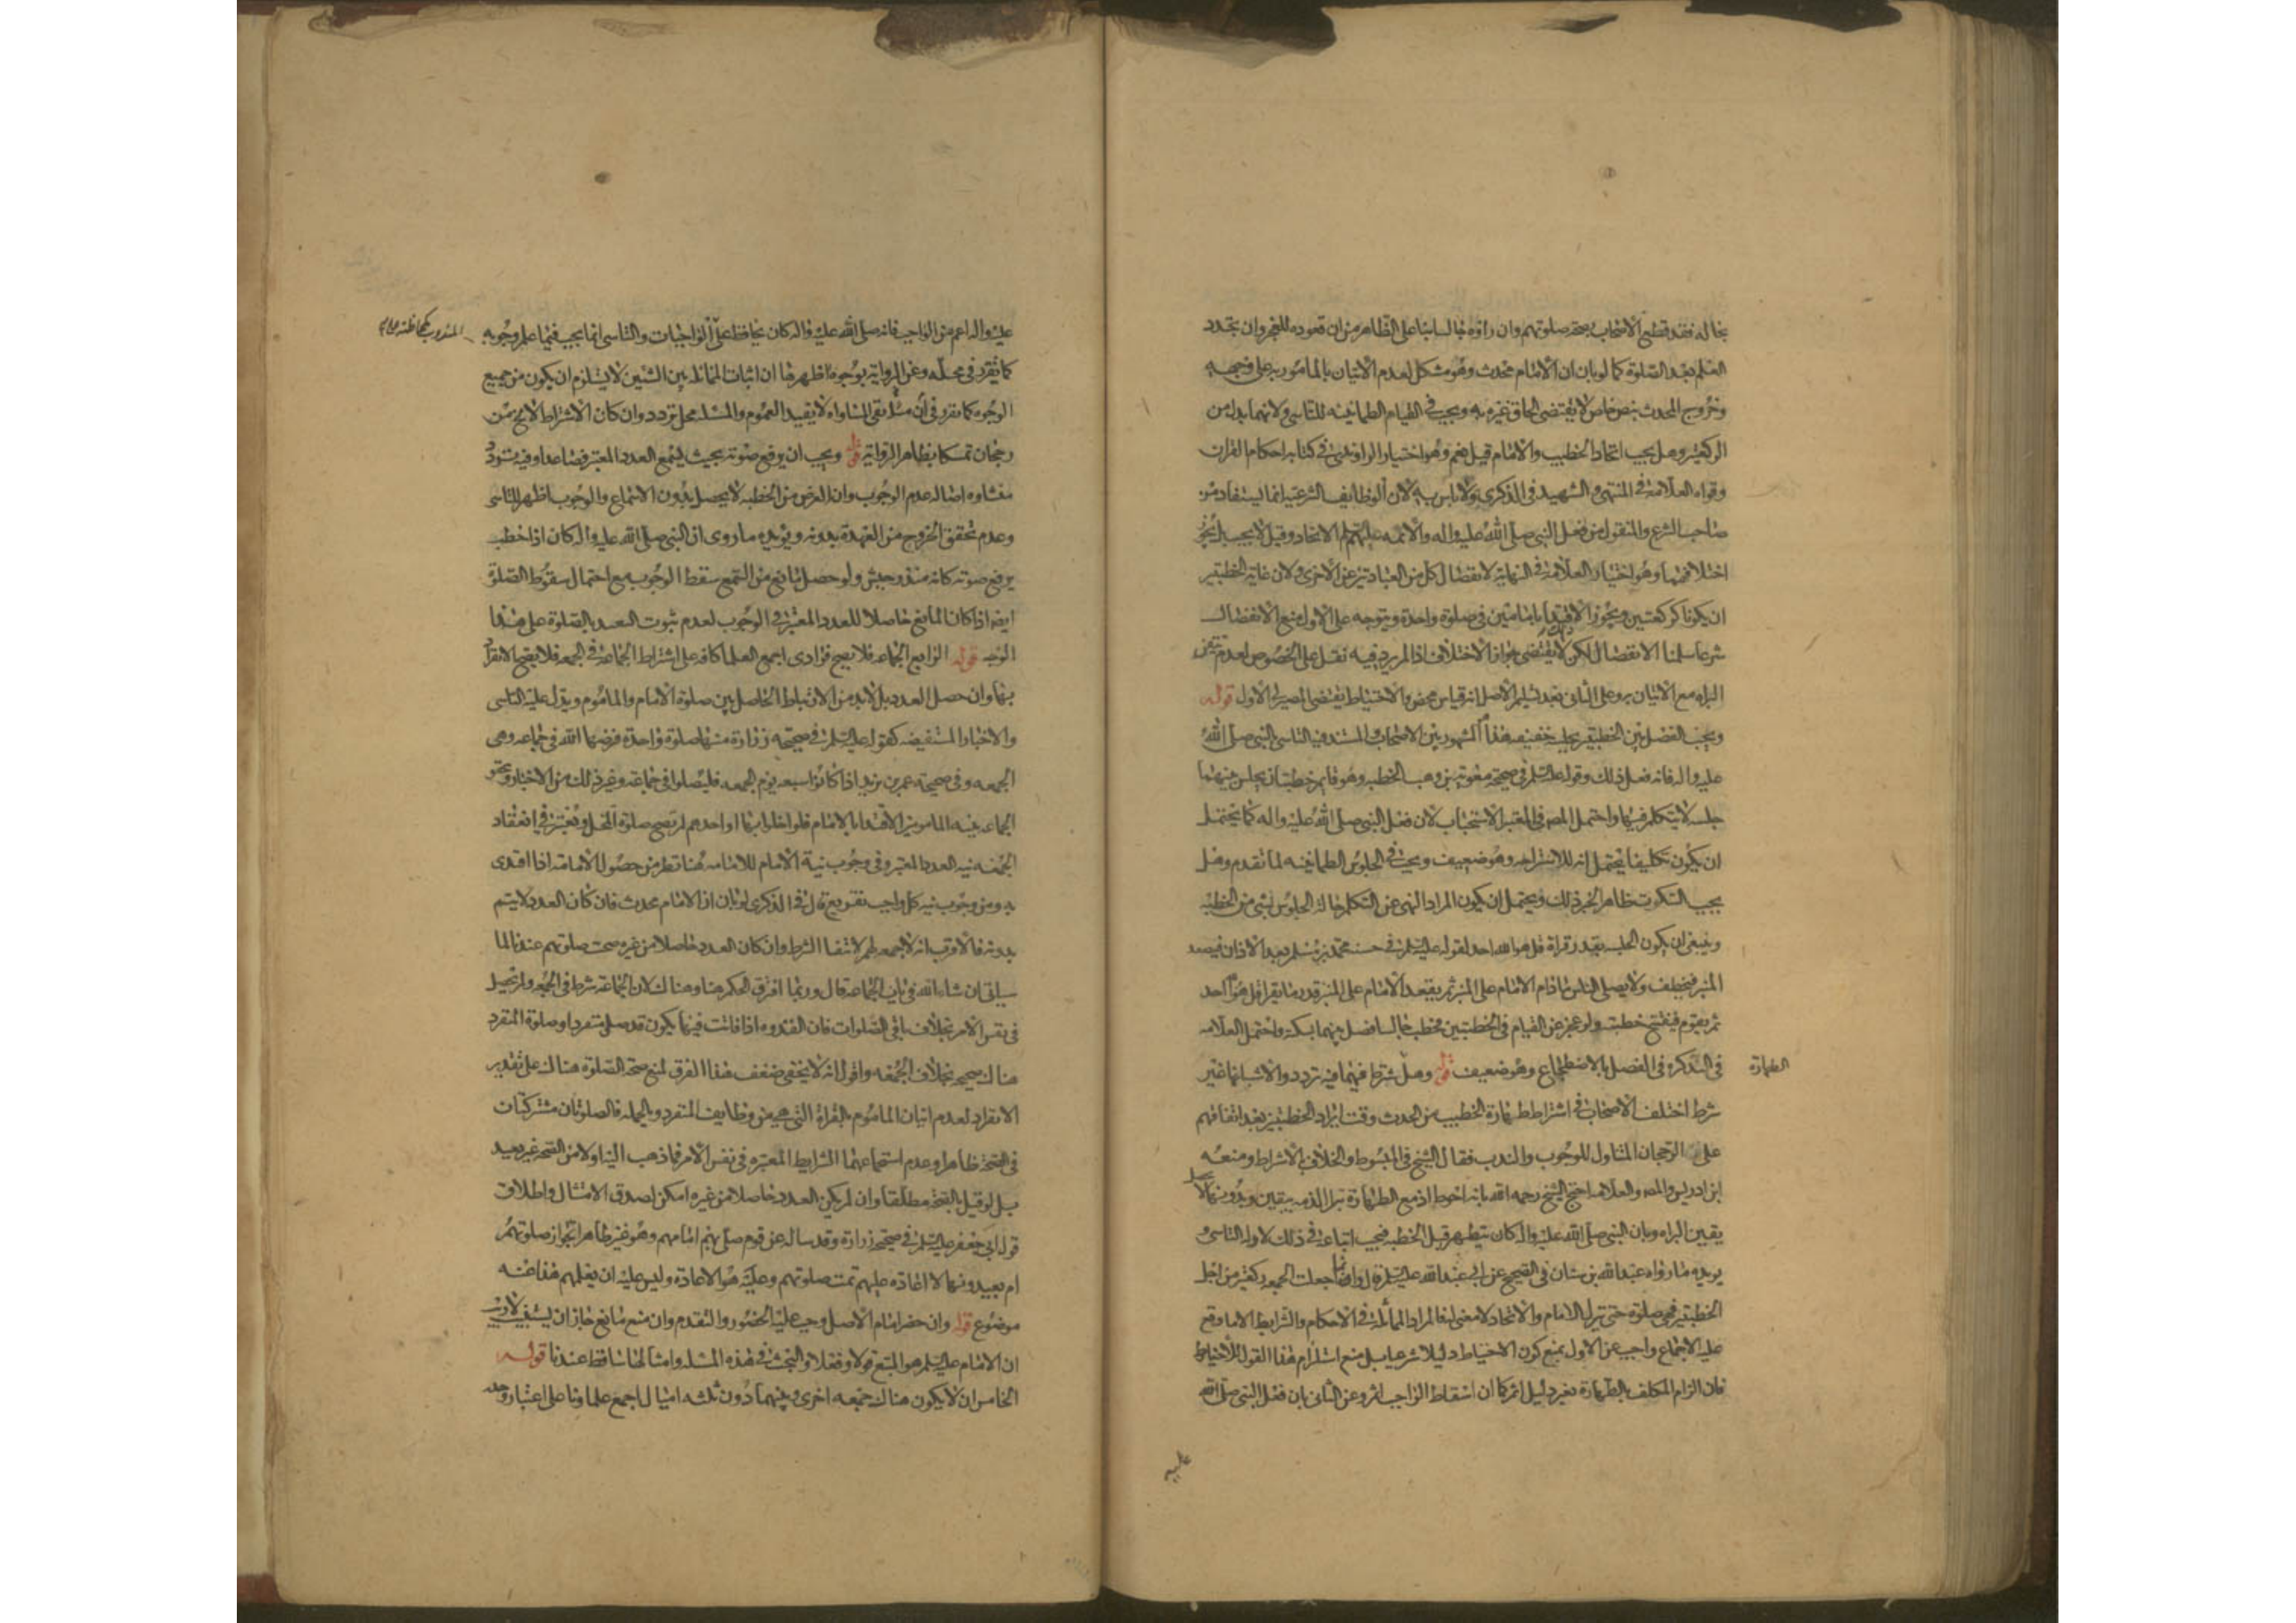 بحاله فقد قطع الاصحاب بصحة صلوتهم وان راوه جالسا بنا على الظاهر من ان قعوده للعجز وان تجدد
العلم بعد الصلوة كما لو بان ان الامام محدث وهو مشكل لعدم الاتيان بالمامور به على وجهه
وخروج المحدث بنص خاص لا يقتضي الحاق غيره به ويجب في القيام الطمانينه للتاسي ولانهما بدل من
الركعتين وهل يجب اتحاد الخطيب والامام قيل نعم وهو اختيار الراوندي في كتابه احكام القران
وقواه العلامة في المنتهى والشهيد في الذكرى ولا باس به لان الوظايف الشرعية انما يستفاد من
صاحب الشرع والمنقول من فعل النبي صلى الله عليه واله والائمه عليهم الاتحاد وقيل لا يجب بل يجوز
اختلافهما وهو اختيار العلامة في النهاية لانفصال كل من العبادتين عن الاخرى ولان غاية الخطبتين
ان يكونا كركعتين ويجوز الاقتدا بامامين في صلوة واحدة ويتوجه على الاول منع الانفصال
شرعا سلمنا الانفصال لكن ذلك لا يقتضي جواز الاختلاف اذا لم يرد فيه نقل على الخصوص لعدم تيقن
البراه مع الاتيان به وعلى الثاني بعد تسليم الاصل انه قياس محض والاحتياط يقتضي المصير الى الاول قوله
ويجب الفصل بين الخطبتين بجلسه خفيفه هذا المشهور بين الاصحاب والمستند فيه التاسي بالنبي صلى الله
عليه واله فانه فعل ذلك وقوله عليه السلم في صحيحة معوية بن وهب الخطبه وهو قايم خطبتان يجلس بينهما
جلسه لا يتكلم فيها واحتمل المصه في المعتبر الاستحباب لان فعل النبي صلى الله عليه واله كما يحتمل
ان يكون تكليفا يحتمل انه للاستراحه وهو ضعيف ويجب في الجلوس الطمانينه لما تقدم وهل
يجب السكوت ظاهر الخبر ذلك ويحتمل ان يكون المراد النهي عن التكلم حالة الجلوس بشي من الخطبة
وينبغي ان يكون الجلسه بقدر قراة قل هو الله احد لقوله عليه السلم في حسنه محمد بن مسلم بعد الاذان فيصعد
المنبر فيخطب ولا يصلي الناس ما دام الامام على المنبر ثم يقعد الامام على المنبر قدر ما يقرا قل هو الله احد
ثم يقوم فيفتتح خطبته ولو عجز عن القيام في الخطبتين فخطب جالسا فصل بينهما بسكتة واحتمل العلامه
في التذكره في الفصل بالاضطجاع وهو ضعيف قوله وهل شرط فيهما فيه تردد والاشبه انها غير
الطهارة
شرط اختلف الاصحاب في اشتراط طهارة الخطيب من الحدث وقت ايراد الخطبتين بعد اتفاقهم
على الرجحان المتناول للوجوب والندب فقال الشيخ في المبسوط والخلاف بالاشتراط ومنعه
ابن ادريس والمصه والعلامه احتج الشيخ رحمه الله بانه احوط اذ مع الطهارة تبرا الذمه بيقين وبدونها لا يحصل
يقين البراه وبان النبي صلى الله عليه واله كان يتطهر قبل الخطبه فيجب اتباعه في ذلك لادلة التاسي
يريده ما رواه عبد الله بن سنان في الصحيح عن ابي عبد الله عليه السلم قال وانما جعلت الجمعه ركعتين من اجل
الخطبتين فهي صلوة حتى ينزل الامام والاتحاد لا معنى له فالمراد المماثلة في الاحكام والشرايط الا ما وقع
عليه الاجماع واجيب عن الاول بمنع كون الاحتياط دليلا شرعيا بل منع استلزام هذا القول للاحتياط
فان الزام المكلف بالطهارة بغير دليل اثم كما ان اسقاط الواجب اثم وعن الثاني بان فعل النبي صلى الله
عليه
عليه واله اعم من الواجب فانه صلى الله عليه واله كان يحافظ على الواجبات والتاسي انما يجب فيما علم وجوبه
المندوب كمحافظته على
كما تقرر في محله وعن الرواية بوجوه اظهرها ان اثبات المماثله بين الشيئين لا يستلزم ان يكون من جميع
الوجوه كما تقرر في ان مسئلة نفي المساواه لا يفيد العموم والمسئله محل تردد وان كان الاشتراط لا يخ من
رجحان تمسكا بظاهر الرواية قوله ويجب ان يرفع صوته بحيث يسمع العدد المعتبر فصاعدا وفيه تردد
منشاوه اصاله عدم الوجوب وان الغرض من الخطبه لا يحصل بدون الاسماع والوجوب اظهر للتاسي
وعدم تحقق الخروج من العهدة بدونه ويؤيده ما روي ان النبي صلى الله عليه واله كان اذا خطب
يرفع صوته كانه منذر جيش ولو حصل مانع من السمع سقط الوجوب مع احتمال سقوط الصلوة
ايضا اذا كان المانع حاصلا للعدد المعتبر في الوجوب لعدم ثبوت التعبد بالصلوة على هذا
الوجه قوله الرابع الجماعه فلا يصح فرادى اجمع العلما كافه على اشتراط الجماعة في الجمعه فلا يصح الانفراد
بها وان حصل العدد بل لا بد من الارتباط الحاصل بين صلوة الامام والماموم ويدل عليه التاسي
والاخبار المستفيضه كقوله عليه السلم في صحيحه زرارة منها صلوة واحدة فرضها الله في جماعه وهي
الجمعه وفي صحيحة عمر بن يزيد اذا كانوا سبعه يوم الجمعه فليصلوا في جماعه وغير ذلك من الاخبار ويتحقق
الجماعه بنيه المامومين الاقتدا بالامام فلو اخلوا بها او احدهم لم يصح صلوة المخل ويعتبر في انعقاد
الجمعه نيه العدد المعتبر وفي وجوب نية الامام للامامه هنا نظر من حصول الامامة اذا اقتدى
به ومن وجوب نيه كل واجب تفريع قال في الذكرى لو بان ان الامام محدث فان كان العدد لا يتم
بدونه فالاقرب انه لا جمعه لهم لانتفا الشرط وان كان العدد حاصلا من غيره صحت صلوتهم عندنا لما
سياتي ان شاء الله في باب الجماعة قال وربما افترق الحكم هنا وهناك لان الجماعة شرط في الجمعه ولم تحصل
في نفس الامر بخلاف باقي الصلوات فان القدوه اذا فاتت فيها يكون قد صلى منفردا وصلوة المنفرد
هناك صحيحه بخلاف الجمعه واقول انه لا يخفى ضعف هذا الفرق لمنع صحة الصلوة هناك على تقدير
الانفراد لعدم اتيان الماموم بالقراة التي هي من وظايف المنفرد وبالجمله فالصلوتان مشتركتان
في الصحة ظاهرا وعدم استجماعهما الشرايط المعتبره في نفس الامر فما ذهب اليه اولا من الصحة غير بعيد
بل لو قيل بالصحة مطلقا وان لم يكن العدد حاصلا من غيره امكن لصدق الامتثال واطلاق
قول ابي جعفر عليه السلم في صحيحه زرارة وقد ساله عن قوم صلى بهم امامهم وهو غير طاهر اتجوز صلوتهم
ام يعيدونها لا اعاده عليهم تمت صلوتهم وعليه هو الاعادة وليس عليه ان يعلمهم هذا عنه
موضوع قوله وان حضر امام الاصل وجب عليه الحضور والتقدم وان منع مانع جاز ان يستنيب لا ريب
ان الامام عليه السلم هو المتبع قولا وفعلا والبحث في هذه المسئله وامثالها ساقط عندنا قوله
الخامس ان لا يكون هناك جمعه اخرى وبينهما دون ثلثه اميال اجمع علماونا على اعتبار وحدة